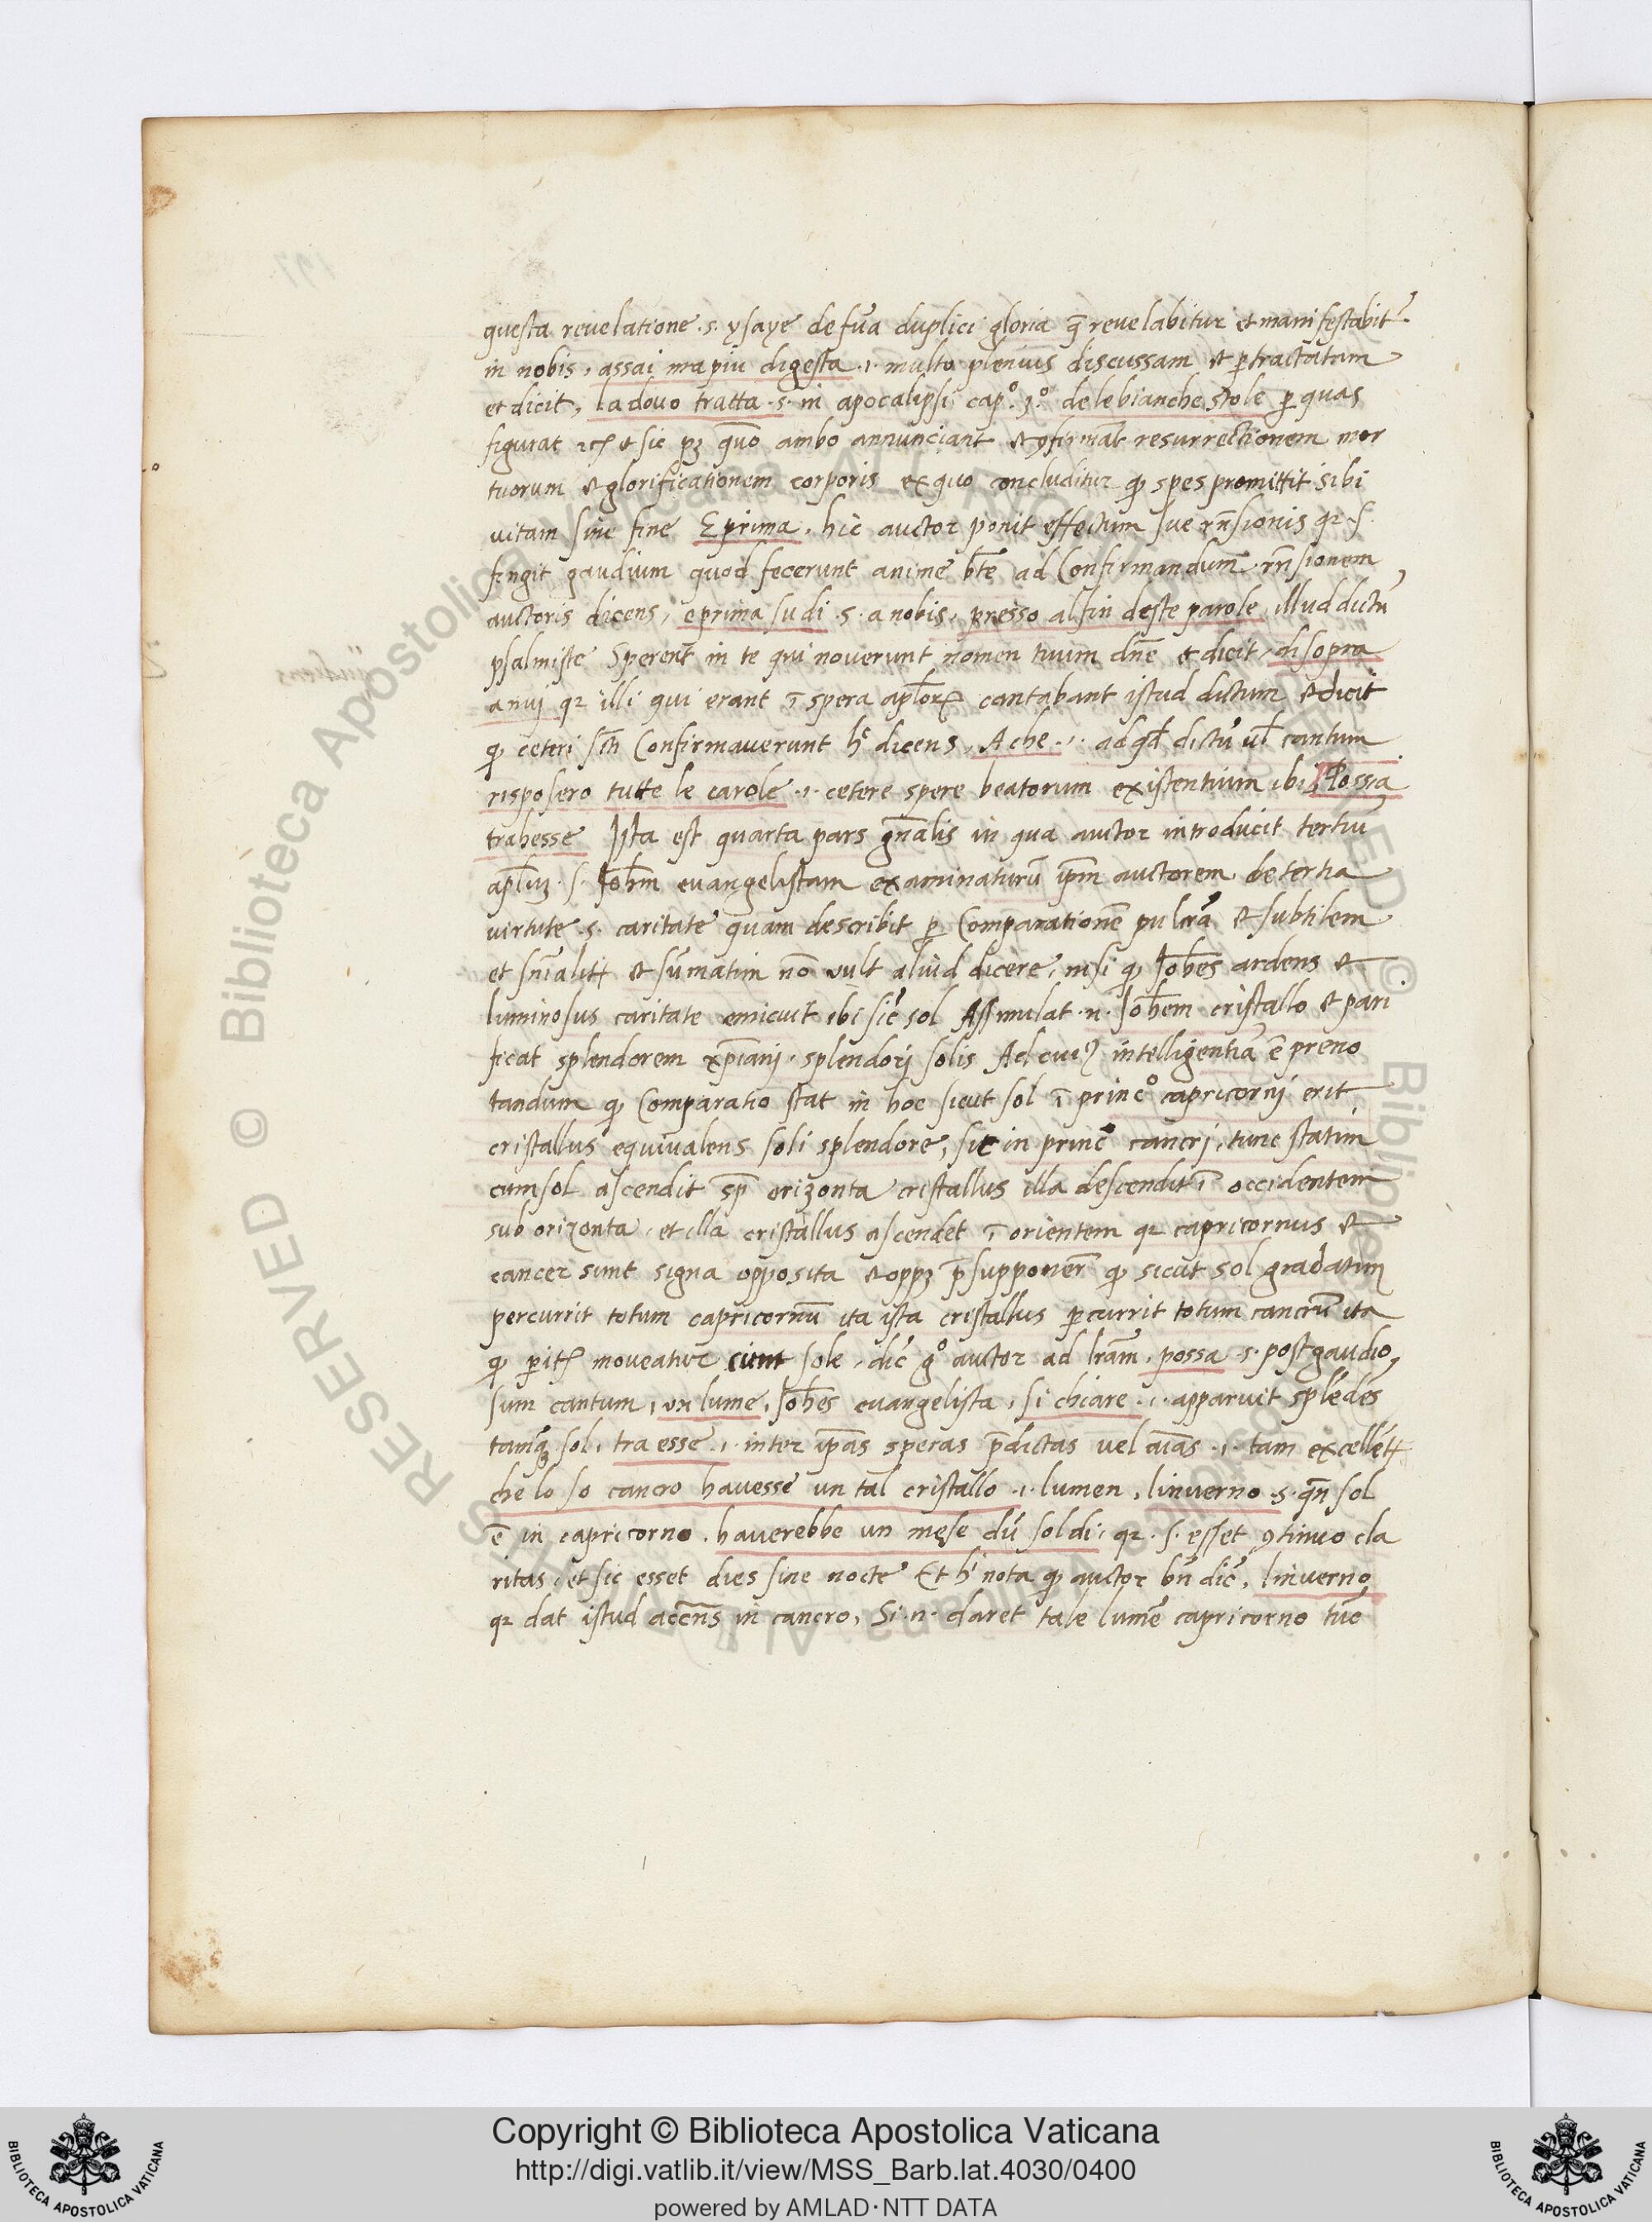 questa reuelatione .s. ysaye de sua duplici gloria q̃ reuelabitur et manifestabit᷑
in nobis, assai ma piu digesta .i. multo plenius discussam et ꝑtractatam
et dicit, la dovo tratta .s. in apocalipsi cap.º 3.º de le bianche stole ꝑ quas
figurat et sic pꝫ quo ambo annunciant et ꝯfirmãt resurrectionem mor
tuorum et glorificationem corporis ex quo concluditur ꝙ spes promittit sibi
uitam sine fine E prima, hic auctor ponit effectum sue rñsionis qꝛ .s.
fingit gaudium quod fecerunt anime bt̃e ad Confirmandum rñsionem
auctoris dicens, e prima su di .s. a nobis, presso al fin deste parole, illud dictũ
psalmiste Sperent in te qui nouerunt nomen tuum dñe et dicit, di sopra
a nuj qꝛ illi qui erant ĩ spera apl̃oꝝ cantabant istud dictum et dicit
ꝙ ceteri Confirmauerunt hͨ dicens, A che .i. ad qd̃ dictũ ul̃ cantum
risposero tutte le carole .i. cetere spere beatorum existentium ibi, Possia
trahesse Ista est quarta pars gñalis in qua auctor introducit tertiũ
apl̃uꝫ .s. Ioh̃m euangelistam examinaturũ ip̃m auctorem de tertia
uirtute .s. caritate quam describit ꝑ Comparationẽ pulcrã et subtilem
et et sũmatim nõ uult aliud dicere, nisi ꝙ Ioh̃es ardens et
luminosus caritate emicuit ibi sic̃ sol Assimulat .n. Ioh̃em cristallo et pari
ficat splendorem xp̃ianj, splendorj solis Ad cuiꝰ intelligentiã ẽ preno
tandum ꝙ Comparatio stat in hoc sicut sol ĩ princº capricornj erit
cristallus equiualens soli splendore, sic in princº cancrj, tunc statim
cum sol ascendit sp̃ orizonta cristallus illa descendit ĩ occidentem
sub orizonta, et illa cristallus ascendet ĩ orientem qꝛ capricornus et
cancer sunt signa opposita et oppꝫ p̃supponer̃ ꝙ sicut sol gradatim
percurrit totum capricornũ ita ista cristallus ꝑcurrit totum cancrũ ita
ꝙ moueatur cum sole, dic̃ gº auctor ad lr̃am, possa .s. post gaudio
sum cantum, un lume, Ioh̃es euangelista, si chiare .i. apparuit splẽdẽs
tamq̃ sol, tra esse .i. inter ip̃as speras p̃dictas uel .i. tam excellẽt
che lo so cancro hauesse un tal cristallo .i. lumen, linuerno .s. qñ sol
ẽ in capricorno, hauerebbe un mese dũ sol di, qꝛ .s. esset ꝯtinuo cla
ritas et sic esset dies sine nocte Et hͥ nota ꝙ auctor bñ dic̃, linuerno
qꝛ dat istud accñs in cancro, Si .n. daret tale lumẽ capricorno tũc
Copyright © Biblioteca Apostolica Vaticana
http://digi.vatlib.it/view/MSS_Barb.lat.4030/0400
powered by AMLAD·NTT DATA